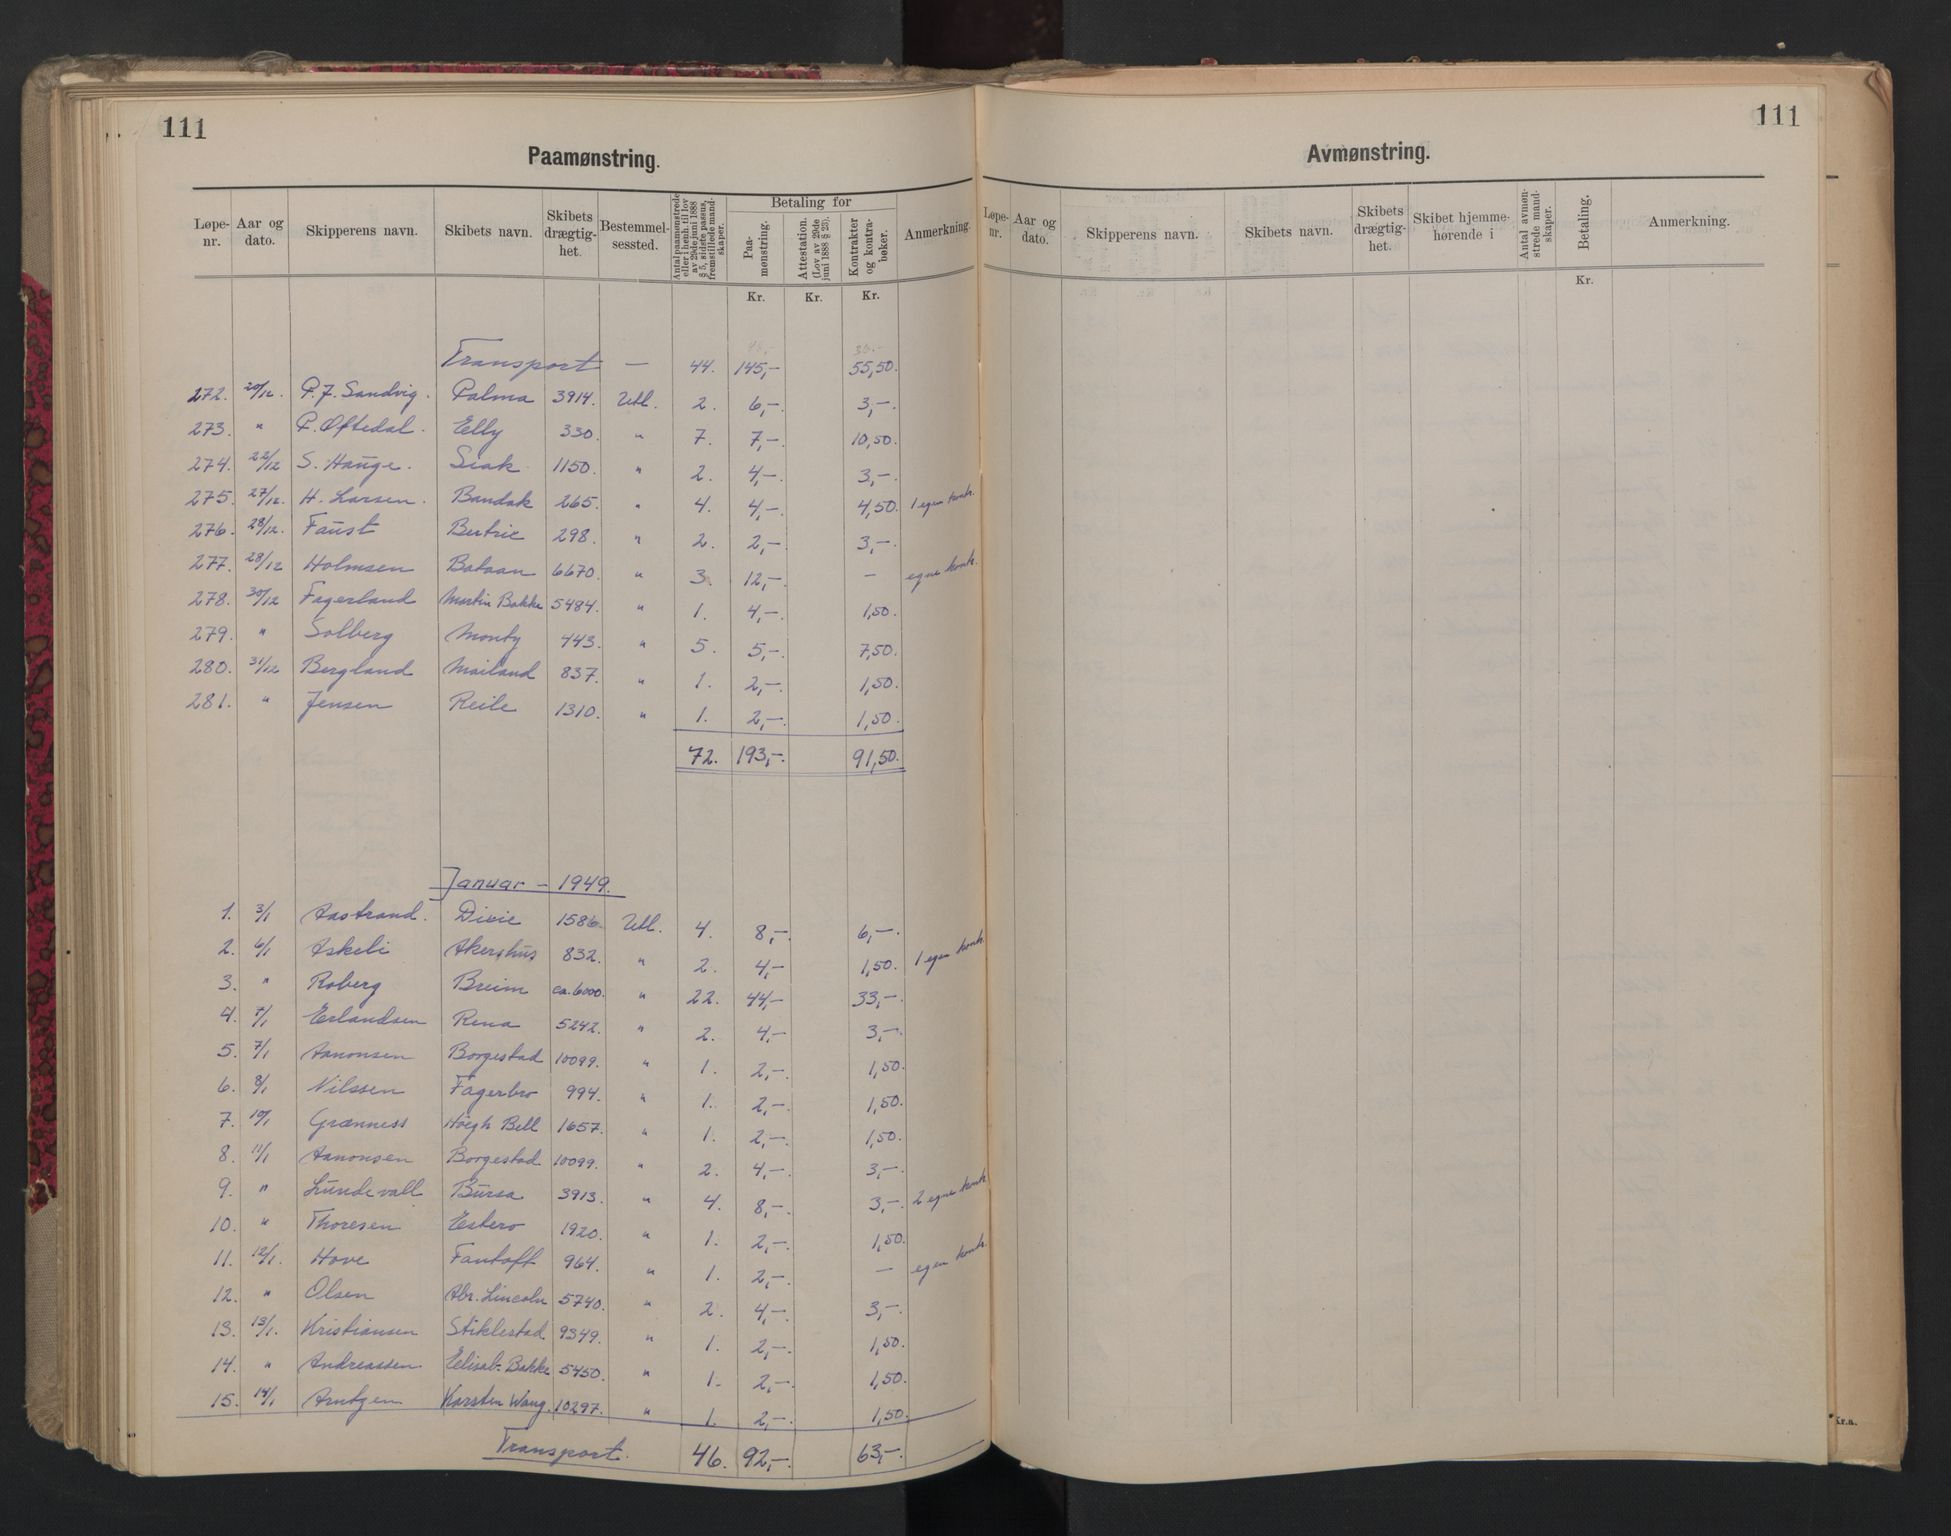 111
Paamønstring.
Løpe-nr. Aar og dato. Skipperens navn. Skibets navn. Skibets drægtig-het. Bestemmel-sessted. Antal paamønstrede eller i henh. til lov av 29de juni 1888 § 5, sidste passus, fremstillede mand-skaper. Betaling for Paa-mønstring. Attestation. (Lov av 29de juni 1888 § 25). Kontrakter og kontra-bøker. Anmerkning.
Kr. Kr. Kr.
Transport — 44. 145,- 55,50.
272. 20/12. P. J. Sandvig. Palma 3914. Utl. 2. 6,-. 3,-.
273. " P. Oftedal. Elly 330. " 7. 7,-. 10,50.
274. 22/12 S. Hauge. Seak 1150. " 2. 4,-. 3,-.
275. 27/12. H. Larsen. Bandak 265. " 4. 4,-. 4,50. 1 egen kontr.
276. 28/12. Faust 298. " 2. 2,-. 3,-.
277. 28/12 Holmsen Bataan 6670. " 3. 12,-. — egne kontr.
278. 30/12 Fagerland Martin Bakke 5484. " 1. 4,-. 1,50.
279. " Solberg Monty 443. " 5. 5,-. 7,50.
280. 31/12 Bergland Mailand 837. " 1. 2,-. 1,50.
281. " Jensen 1310. " 1. 2,-. 1,50.
72. 193,-. 91,50.
Januar - 1949.
1. 3/1 Aastrand. Dixie 1586. Utl. 4. 8,-. 6,-.
2. 6/1 Askeli Akershus 832. " 2. 4,- 1,50. 1 egen kontr.
3. " Roberg Breim ca. 6000. " 22. 44,- 33,-.
4. 7/1 Erlandsen Rena 5242. " 2. 4,- 3,-.
5. 7/1 Aanonsen Borgestad 10099. " 1. 2,-. 1,50.
6. 8/1 Nilssen Fagerbro 994. " 1. 2,-. 1,50.
7. 10/1 Grænness Höegh Bell 1657. " 1. 2,-. 1,50.
8. 11/1 Aanonsen Borgestad 10099. " 2. 4,-. 3,-.
9. " Lundevall Bursa 3913. " 4. 8,-. 3,-. 2 egne kontr.
10. " Thoresen Estero 1920. " 1. 2,-. 1,50.
11. 12/1. Hove Fantoft 964. " 1. 2,-. — egen kontr.
12. " Olsen Abr. Lincoln 5740. " 2. 4,-. 3,-.
13. 13/1. Kristiansen Stiklestad 9349. " 1. 2,-. 1,50.
14. " Andreassen Elisab. Bakke 5450. " 1. 2,-. 1,50.
15. 14/1 Arntzen Karsten Wang. 10297. " 1. 2,-. 1,50.
Transport. 46. 92,-. 63,-.
111
Avmønstring.
Løpe-nr. Aar og dato. Skipperens navn. Skibets navn. Skibets drægtig-het. Skibet hjemme-hørende i Antal avmøn-strede mand-skaper. Betaling. Anmerkning.
Kr.
Kr.a.